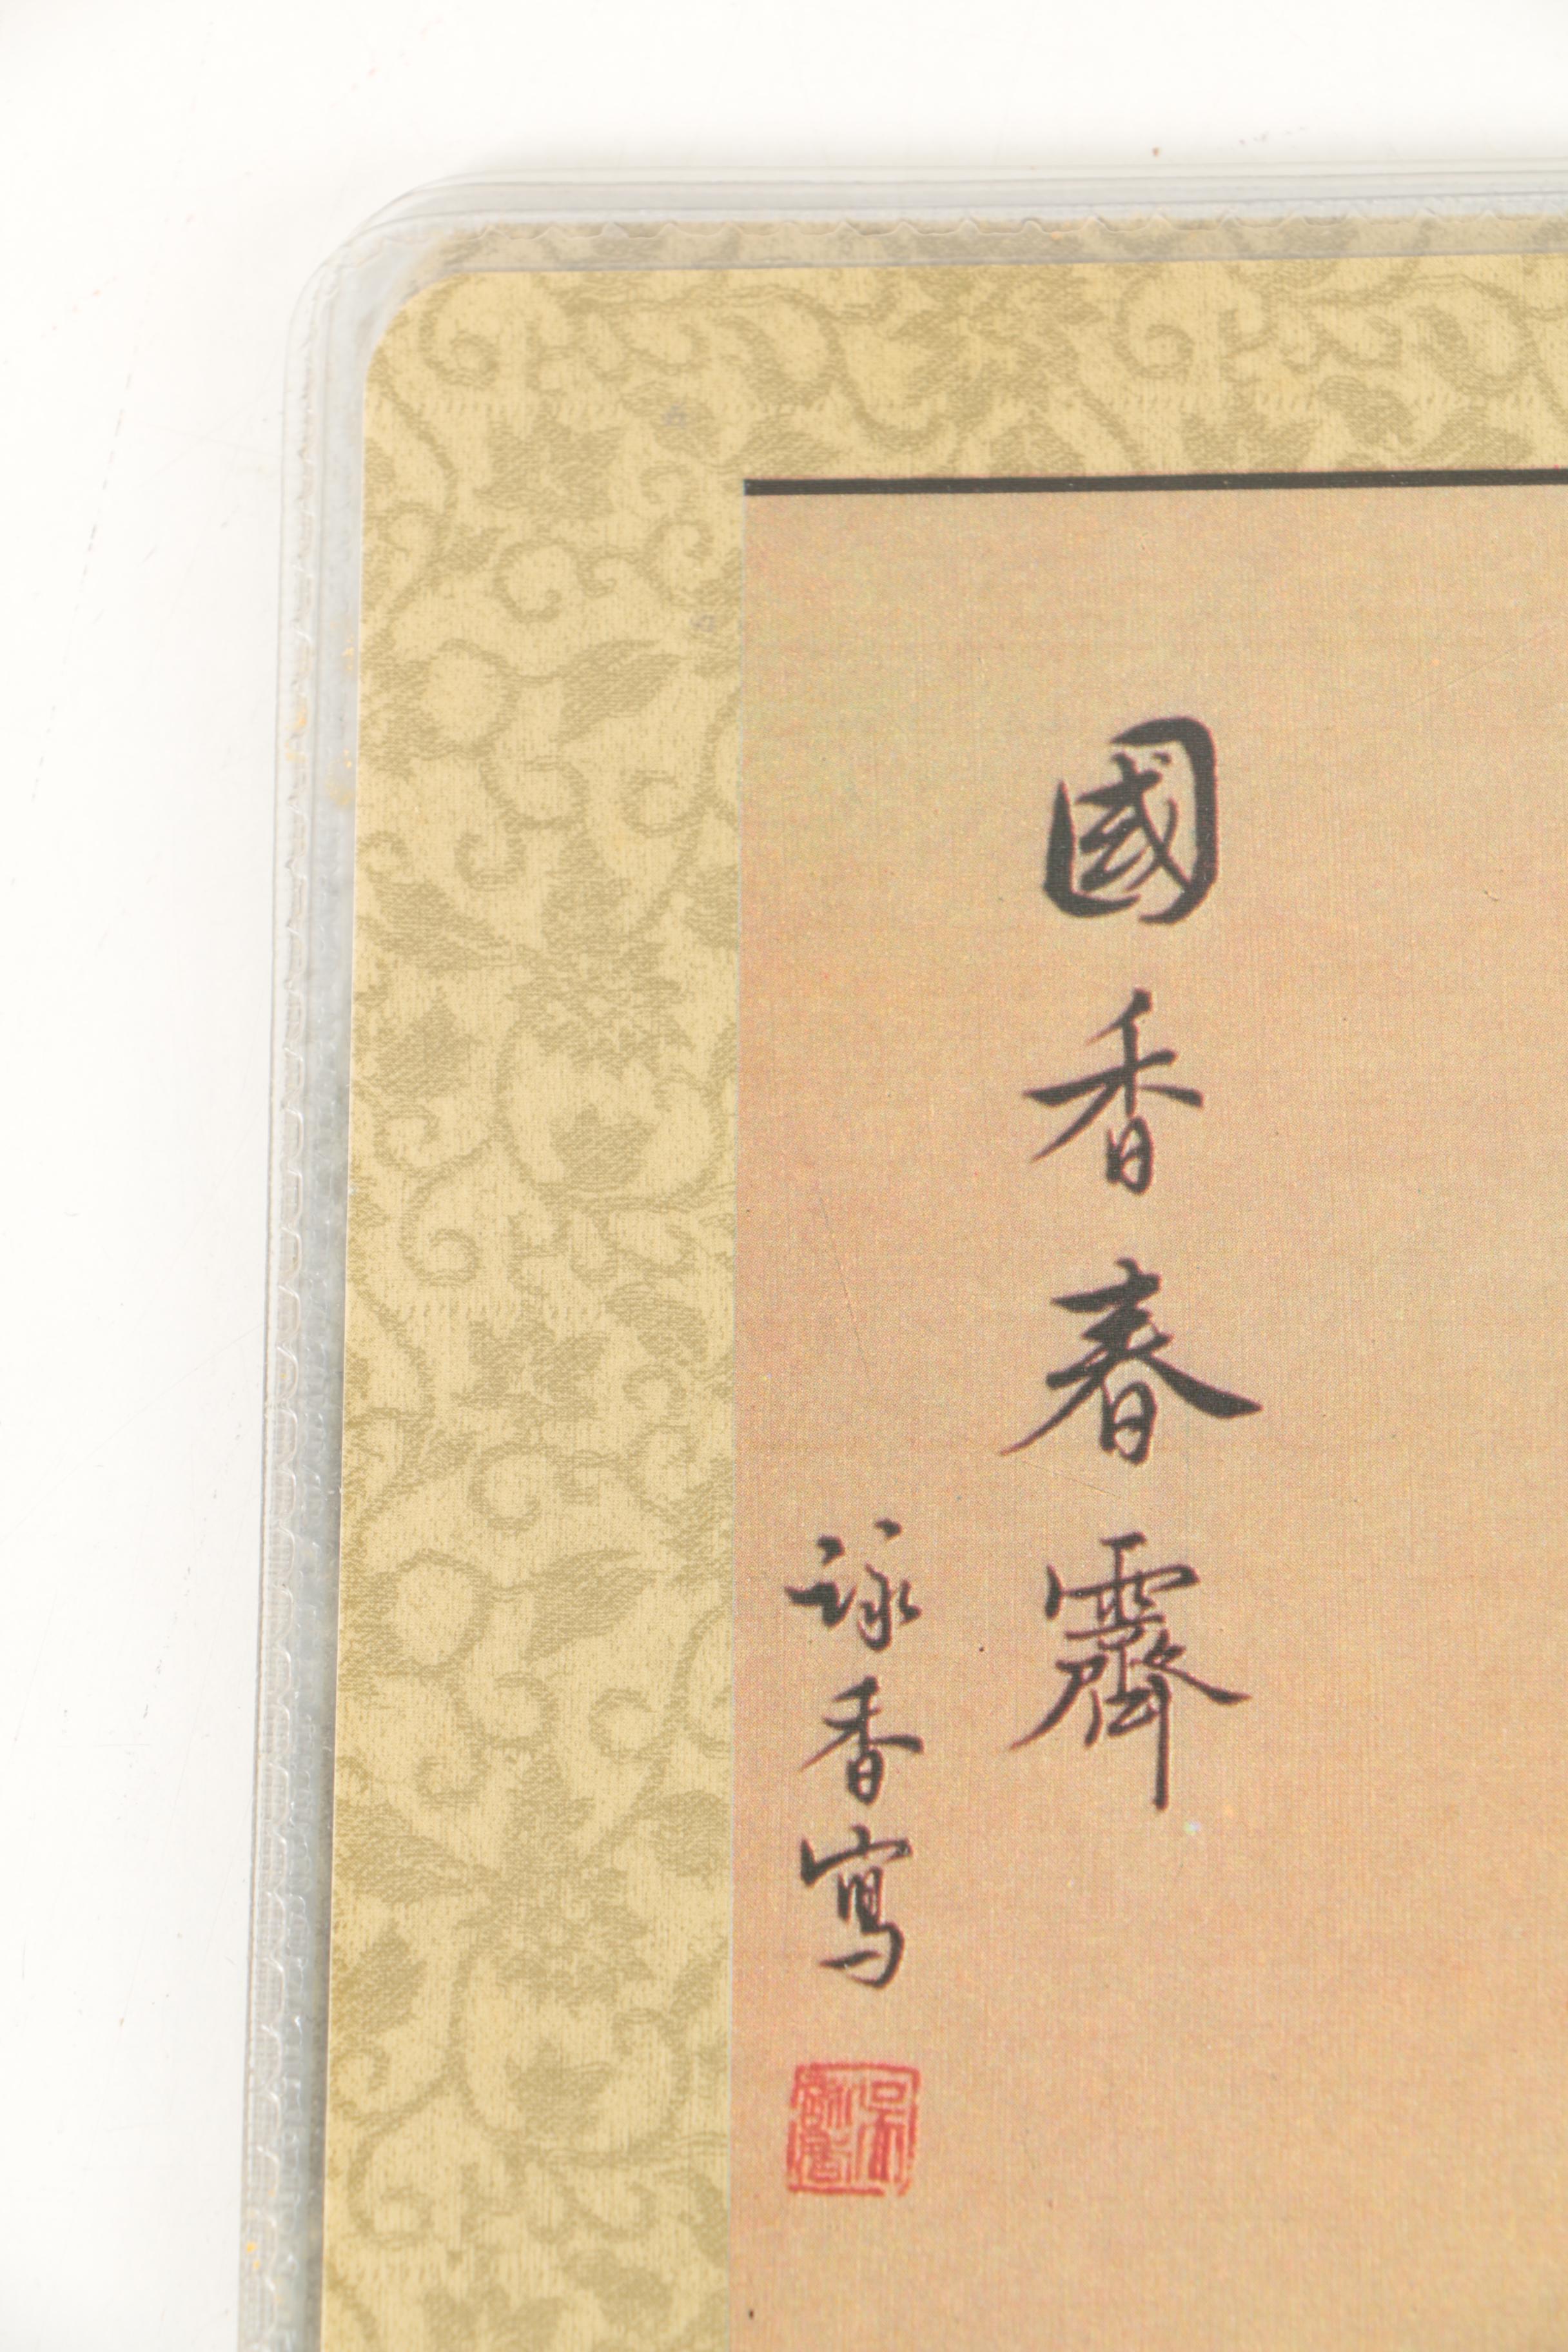 國香春霽
詠香寫